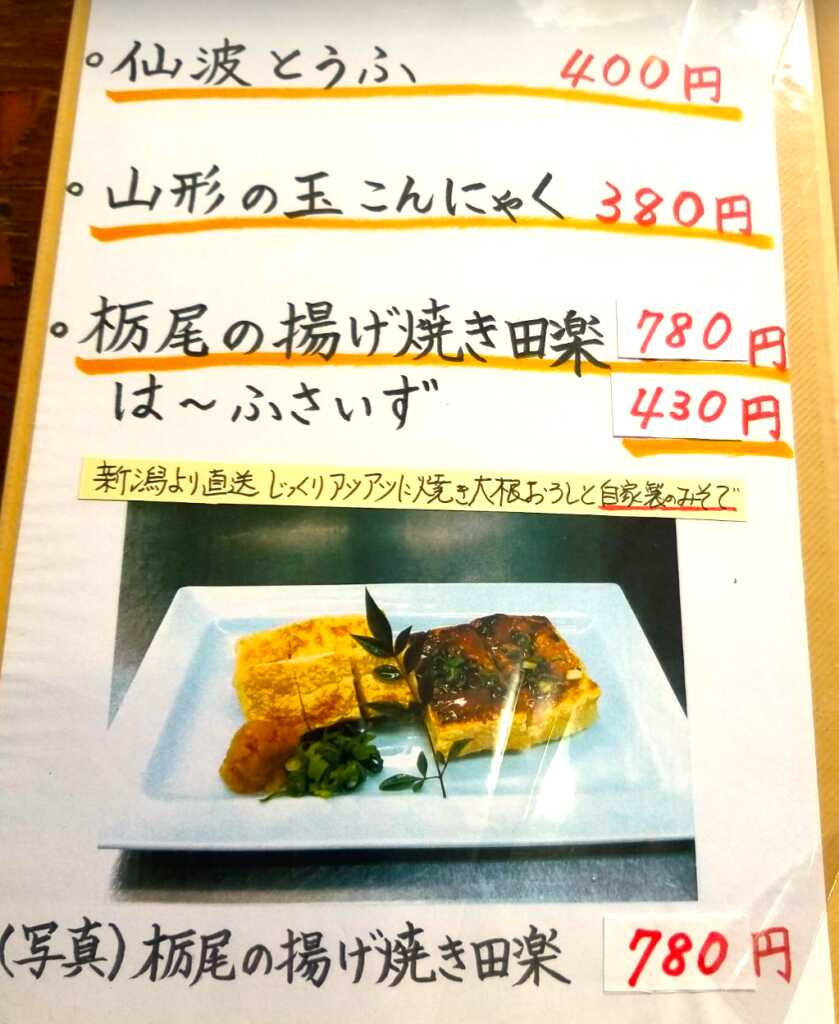 。仙波とうふ 400円
。山形の玉こんにゃく 380円
。栃尾の揚げ焼き田楽 780円
は〜ふさいず 430円
新潟より直送 じっくりアツアツに焼き大根おろしと自家製のみそで
(写真)栃尾の揚げ焼き田楽 780円